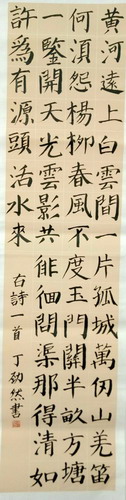 黄河遠上白雲間一片孤城萬仞山羌笛
何湏怨楊柳春風不度玉門關半畝方塘
一鑒開天光雲影共徘徊問渠那得清如
許爲有源頭活水來
右詩一首 丁然書